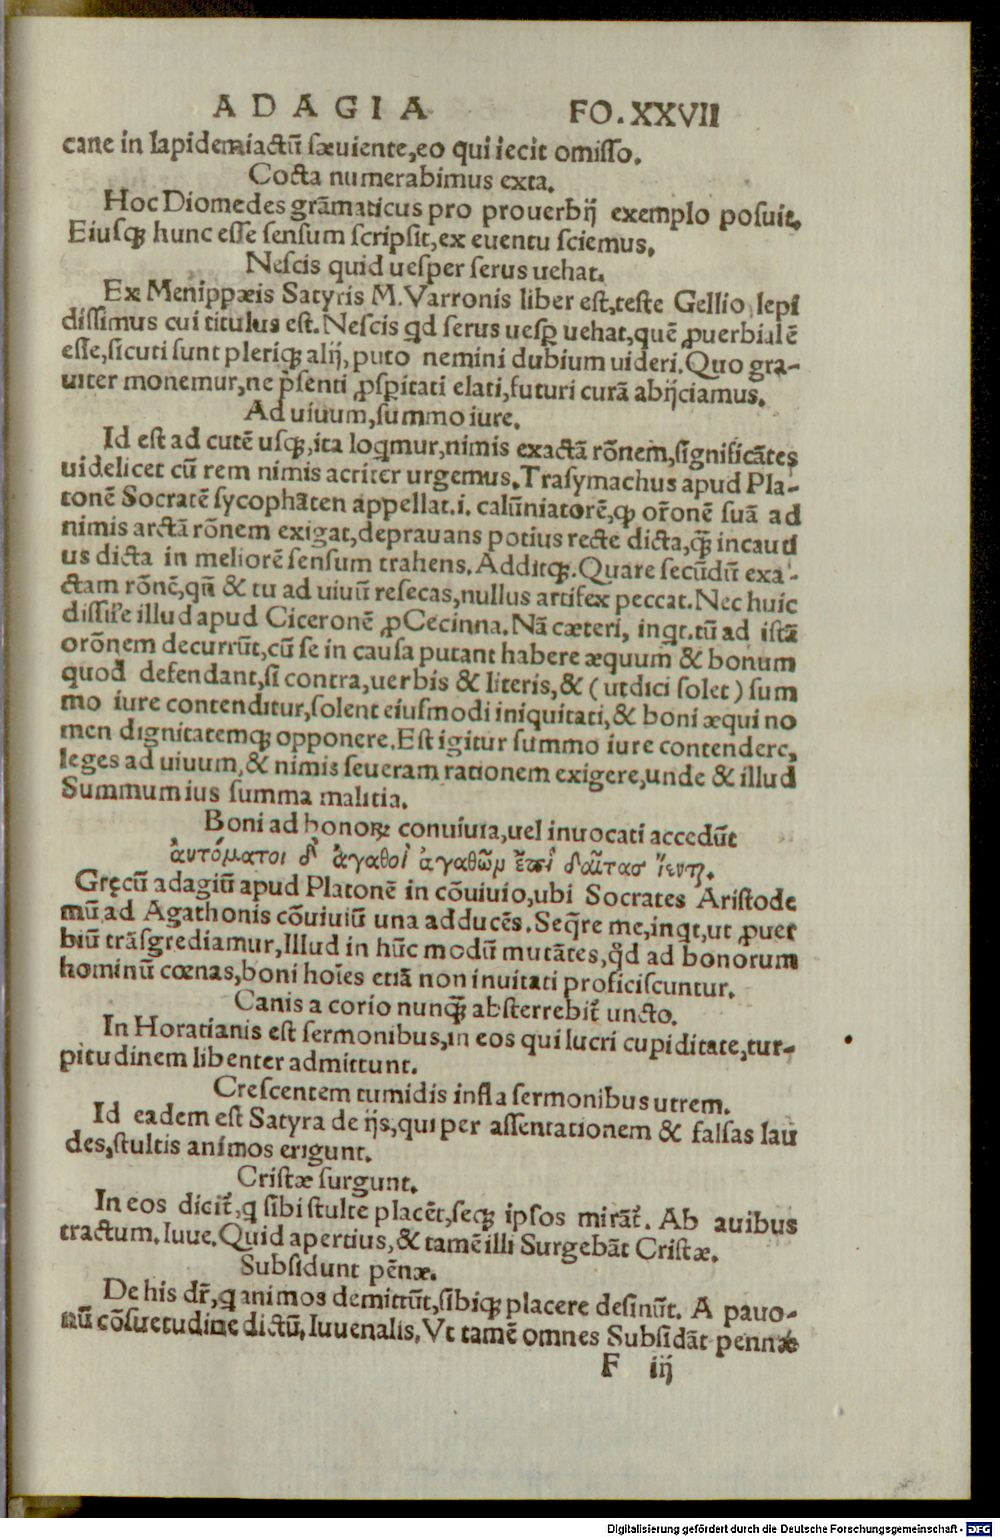 ADAGIA FO.XXVII
cane in lapidem iactū sæuiente, eo qui iecit omisso.
Cocta numerabimus exta.
Hoc Diomedes grāmaticus pro prouerbij exemplo posuit,
Eiusqꝫ hunc esse sensum scripsit, ex euentu sciemus.
Nescis quid uesper serus uehat.
Ex Menippæis Satyris M. Varronis liber est, teste Gellio lepi
dissimus cui titulus est. Nescis qd serus uesꝑ uehat, quē ꝓuerbialē
esse, sicuti sunt pleriqꝫ alij, puto nemini dubium uideri. Quo gra-
uiter monemur, ne p̄senti ꝓsꝑitati elati, futuri curā abijciamus.
Ad uiuum, summo iure.
Id est ad cutē usqꝫ, ita loqmur, nimis exactā rōnem, significātes
uidelicet cū rem nimis acriter urgemus. Trasymachus apud Pla-
tonē Socratē sycophāten appellat .i. calūniatorē, qꝫ or̄onē suā ad
nimis arctā rōnem exigat, deprauans potius recte dicta, qꝫ̄ incauti
us dicta in meliorē sensum trahens. Additqꝫ. Quare secūdū exa-
ctam rōnē, qn̄ & tu ad uiuū resecas, nullus artifex peccat. Nec huic
dissil'e illud apud Ciceronē ꝓ Cecinna. Nā cæteri, inqt. tū ad istā
orōnem decurrūt, cū se in causa putant habere æquum & bonum
quod defendant, si contra, uerbis & literis, & (ut dici solet) sum
mo iure contenditur, solent eiusmodi iniquitati, & boni æqui no
men dignitatemqꝫ opponere. Est igitur summo iure contendere,
leges ad uiuum, & nimis seueram rationem exigere, unde & illud
Summum ius summa malitia.
Boni ad bonoꝝ conuiuia, uel inuocati accedūt
ἀυτόματοι δ' ἀγαθοὶ ἀγαθῶμ ἔπὶ δαῖτασ ἵεντ.
Grecū adagiū apud Platonē in cōuiuio, ubi Socrates Aristode
mū ad Agathonis cōuiuiū una adducēs. Seqre me, inqt, ut ꝓuer
biū trāsgrediamur, Illud in hūc modū mutātes, qd ad bonorum
hominū cœnas, boni hoies etiā non inuitati proficiscuntur.
Canis a corio nunqꝫ̄ absterrebit̄ uncto.
In Horatianis est sermonibus, in eos qui lucri cupiditate, tur-
pitudinem libenter admittunt.
Crescentem tumidis infla sermonibus utrem.
Id eadem est Satyra de ijs, qui per assentationem & falsas lau
des, stultis animos erigunt.
Cristæ surgunt.
In eos dicit̄, q sibi stulte placēt, seqꝫ ipsos mirāt̄. Ab auibus
tractum. Iuue. Quid apertius, & tamē illi Surgebāt Cristæ.
Subsidunt pēnæ.
De his dr̄, q animos demittūt, sibiqꝫ placere desinūt. A pauo-
nū cōsuetudine dictū, Iuuenalis, Vt tamē omnes Subsidāt pennæ
F iij
Digitalisierung gefördert durch die Deutsche Forschungsgemeinschaft - DFG